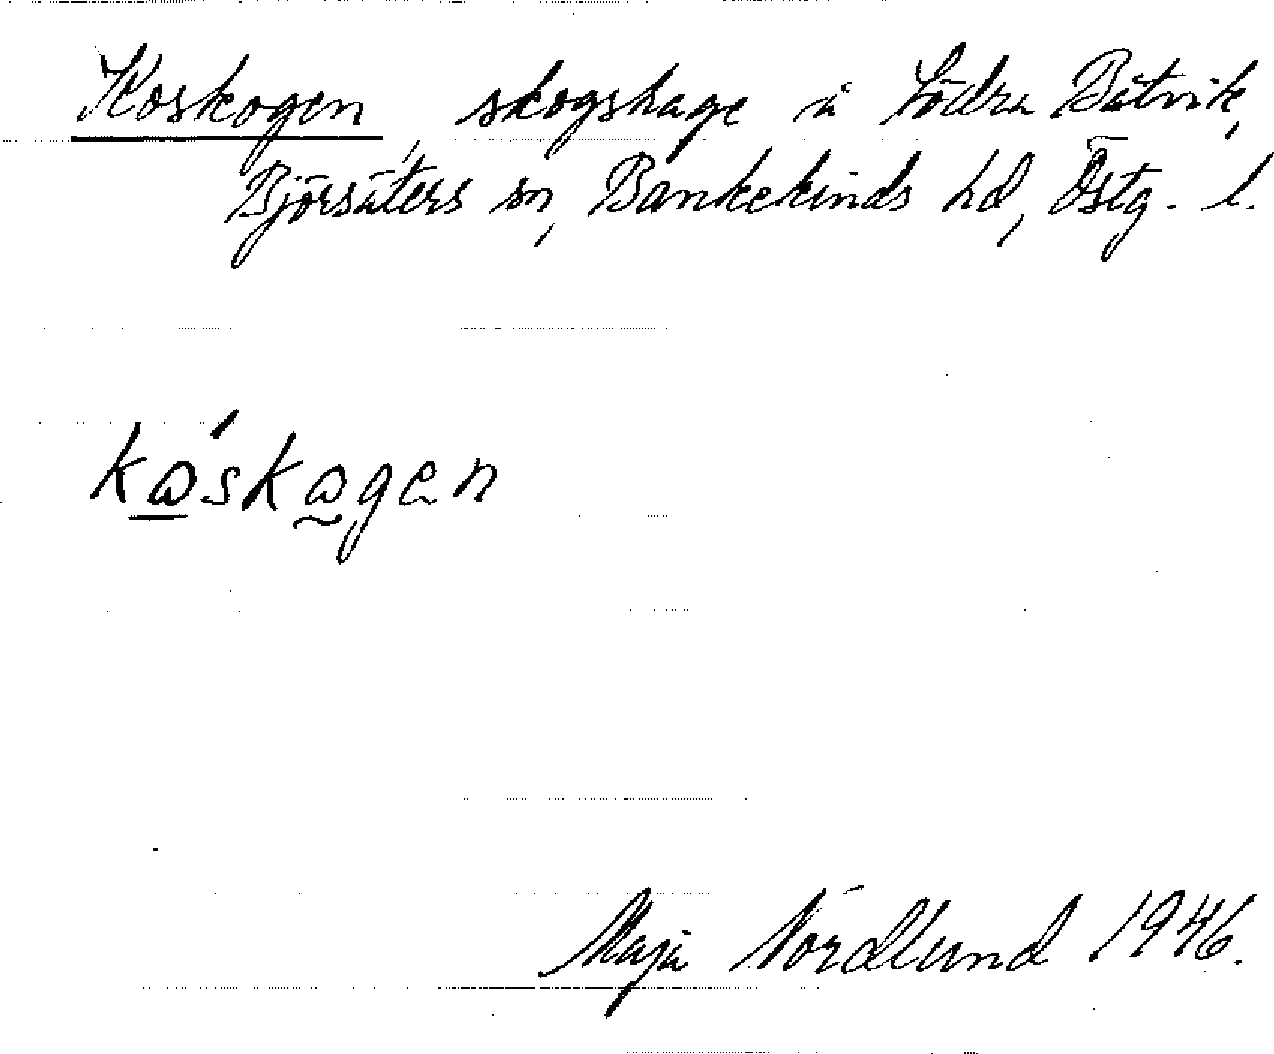 Koskogen, skogshage å Södra Båtvik,
Björsäters sn, Bankekinds hd, Östg. l.
kώskωgen
Maja Nordlund 1946.